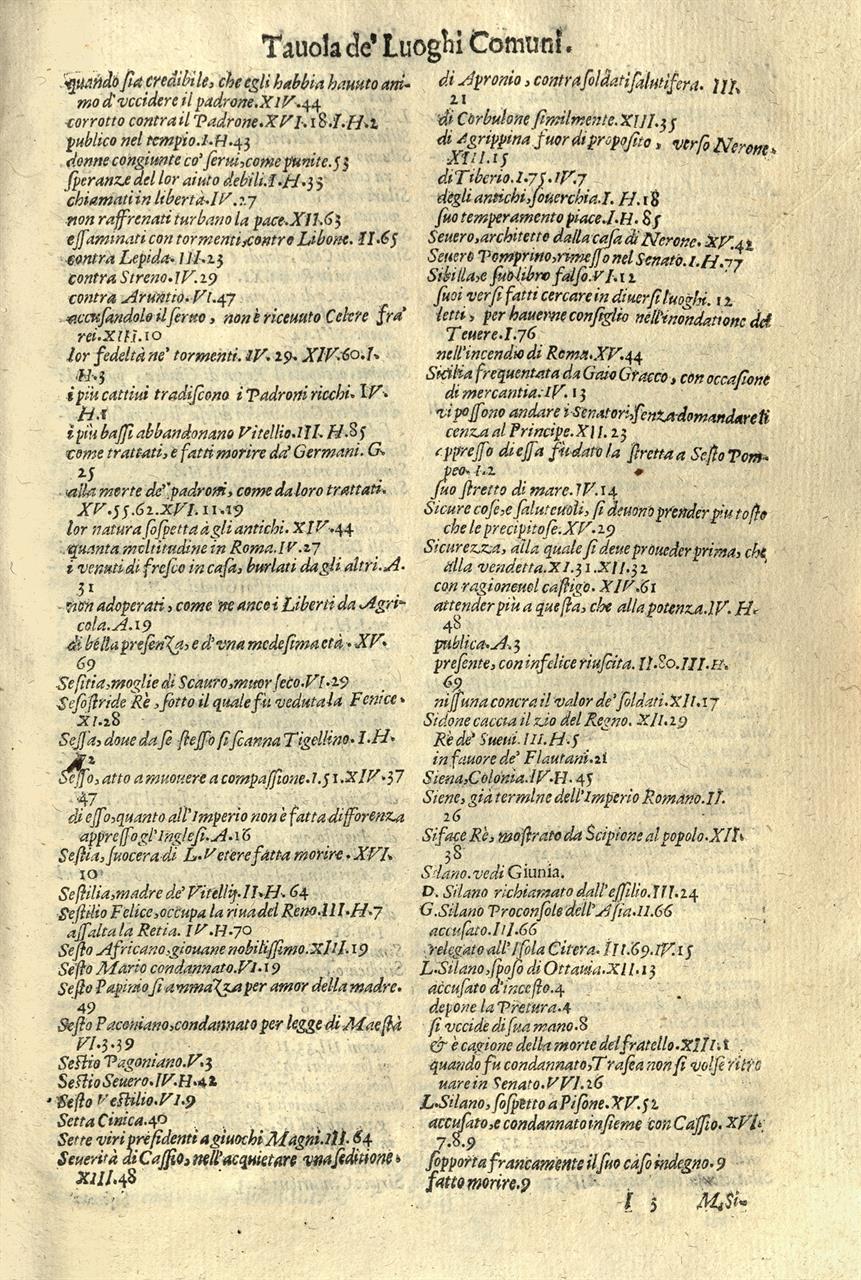 Tavola de' Luoghi Comuni.
quando sia credibile, che egli habbia hauuto ani-
mo d'vccidere il padrone.XIV.44
corrotto contra il Padrone.XVI.18.I.H.2
publico nel tempio.I.H.43
donne congiunte co' serui,come punite.53
speranze del lor aiuto debili.I.H.33
chiamati in libertà.IV.27
non raffrenati turbano la pace.XII.63
essaminati con tormenti,contro Libone. II.65
contra Lepida.III.23
contra Streno.IV.29
contra Aruntio.VI.47
accusandolo il seruo, non è riceuuto Celere fra'
rei.XIII.10
lor fedeltà ne' tormenti. IV. 29. XIV.60.I.
H.3
i più cattiui tradiscono i Padroni ricchi. IV.
H.1
i più bassi abbandonano Vitellio.III.H.85
come trattati, e fatti morire da' Germani. G.
25
alla morte de' padroni, come da loro trattati.
XV.55.62.XVI.11.19
lor natura sospetta à gli antichi.XIV.44
quanta moltitudine in Roma.IV.27
i venuti di fresco in casa, burlati da gli altri.A.
31
non adoperati, come ne anco i Liberti da Agri-
cola.A.19
di bella presenza, e d'vna medesima età. XV.
69
Sesitia,moglie di Scauro,muor seco.VI.29
Sesostride Rè, sotto il quale fù veduta la Fenice.
XI.28
Sessa, doue da se stesso si scanna Tigellino.I.H.
72
Sesso, atto a muouere a compassione.I.51.XIV.37
47
di esso,quanto all'Imperio non è fatta differenza
appresso gl'Inglesi.A.16
Sestia, suocera di L.Vetere fatta morire.XVI.
10
Sestilia,madre de' Vitellij.II.H.64
Sestilio Felice,occupa la riua del Reno.III.H.7
assalta la Retia. IV.H.70
Sesto Africano,giouane nobilissimo.XIII.19
Sesto Mario condannato.VI.19
Sesto Papinio si ammazza per amor della madre.
49
Sesto Paconiano,condannato per legge di Maestà
VI.3.39
Sestio Pagoniano.V.3
Sestio Seuero.IV.H.42
Sesto Vestilio.VI.9
Setta Cinica.40
Sette viri presidenti a giuochi Magni.III.64
Seuerità di Cassio, nell'acquietare vna seditione.
XIII.48
di Apronio, contra soldati salutifera. III.
21
di Corbulone similmente.XIII.35
di Agrippina fuor di proposito, verso Nerone.
XIII.15
di Tiberio.I.75.IV.7
degli antichi,souerchia.I.H.18
suo temperamento piace.I.H.85
Seuero,architetto dalla casa di Nerone. XV.42
Seuero Pomprino,rimesso nel Senato.I.H.77
Sibilla,e suo libro falso.VI.12
suoi versi fatti cercare in diuersi luoghi. 12
letti, per hauerne consiglio nell'inondatione del
Teuere.I.76
nell'incendio di Roma.XV.44
Sicilia frequentata da Gaio Gracco, con occasione
di mercantia.IV.13
vi possono andare i Senatori,senza domandare li
cenza al Principe.XII.23
appresso di essa fu dato la stretta a Sesto Pom-
peo.I.2
suo stretto di mare.IV.14
Sicure cose,e saluteuoli, si deuono prender più tosto
che le precipitose.XV.29
Sicurezza, alla quale si deue proueder prima, che
alla vendetta.XI.31.XII.32
con ragioneuol castigo. XIV.61
attender più a questa, che alla potenza.IV. H.
48
publica.A.3
presente, con infelice riuscita. II.80.III.H.
69
nissuna concra il valor de' soldati.XII.17
Sidone caccia il zio del Regno. XII.29
Rè de' Sueui.III.H.5
in fauore de' Flautani.21
Siena,Colonia.IV.H.45
Siene, già termine dell'Imperio Romano.II.
26
Siface Rè, mostrato da Scipione al popolo.XII.
38
Silano.vedi Giunia.
D. Silano richiamato dall'essilio.III.24
G.Silano Proconsole dell'Asia.II.66
accusato.III.66
relegato all'Isola Citera.III.69.IV.15
L.Silano,sposo di Ottauia.XII.13
accusato d'incesto.4
depone la Pretura.4
si vccide di sua mano.8
& è cagione della morte del fratello.XIII.1
quando fu condannato,Trasea non si volse ritro
uare in Senato.VVI.26
L.Silano, sospetto a Pisone.XV.52
accusato,e condannato insieme con Cassio. XVI.
7.8.9
sopporta francamente il suo caso indegno.9
fatto morire.9
I 3 M.Si-